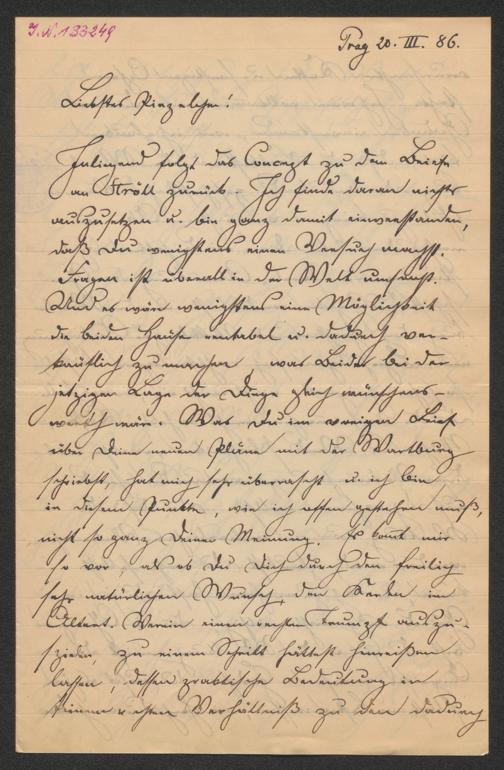 J. N. 133249
Prag 20. III. 86.
Liebstes Pinzelchen!
Inliegend folgt das Concept zu dem Briefe
an Ströll zurück. Ich finde daran nichts
auszusetzen u. bin ganz damit einverstanden,
daß Du wenigstens einen Versuch machst.
Fragen ist überall in der Welt umsonst.
Und es wäre wenigstens eine Möglichkeit
die beiden Häuser rentabel u. dadurch ver-
käuflich zu machen, was Beides bei der
jetzigen Lage der Dinge gleich wünschens-
werth wäre. Was Du im vorigen Brief
über Deine neuen Pläne mit der Wartburg
schriebst, hat mich sehr überrascht u. ich bin
in diesem Punkte, wie ich offen gestehen muß,
nicht so ganz Deiner Meinung. Es komt mir
so vor, als ob Du Dich durch den freilich
sehr natürlichen Wunsch, den Kerlen im
Altert. Verein einen rechten Trumpf auszu-
spielen, zu einem Schritt hättest hinreißen
lassen, dessen praktische Bedeutung in
keinem rechten Verhältniß zu den dadurch